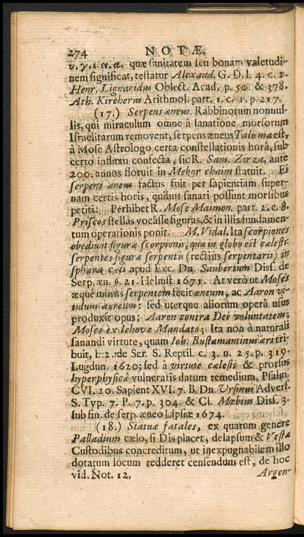 274 NOTÆ.
υ. γ. ι. α. α. quæ sanitatem seu bonam valetudi-
nem significat, testatur Alexand. G. D. l. 4. c. 2.
Henr. Lignaridus Oblect. Acad. p. 50. & 378.
Ath. Kircherus Arithmol. part. 1. c. 1. p 217.
(17.) Serpens æneus. Rabbinorum nonnul-
lis, qui miraculum omne à sanatione morsorum
Israëlitarum removent, serpens æneus Talisma est,
à Mose Astrologo certa constellationis hora, sub
certo influxu confecta, sic R. Sam. Zirza, ante
200. annos floruit in Mekor chaim statuit. Ei
serpens æneus factus fuit per sapientiam super-
nam certis horis, quibus sanari possunt moribus
petiti. Perhibet R. Mose Maimon. part. 2. c. 8.
Priscos stellas vocasse spheras, & in illis fundamen-
tum operationis ponit M. Vidal. Ita scorpiones
obediunt figuræ scorpionis, quæ in globo est cælesti:
serpentes figuræ serpentis (rectius serpentarii) in
sphæra cæli apud Exc. Dn. Saubertum Diss. de
Serp. æn. §. 21. Helmst. 1671. At vero ut Moses
æque minus serpentem fecit æneum, ac Aaron vi-
tulum aureum: sed uterque aliorum operâ usus
produxit opus; Aaron contra Dei voluntatem;
Moses ex Jehovæ Mandato; Ita non à naturali
sanandi virtute, quam Joh. Eustamantinus æri tri-
buit, l. 2. de Scr. S. Reptil. c. 3. n. 25. p. 319.
Lugdun. 1620; sed à virtute cælesti & prorsus
hyperphysicâ vulneratis datum remedium, Psalm.
CVI. 20. Sapient XVI. 7. B. Dn. Ursinus Advers.
S. Typ. 7. P. 7. p. 304. & Cl. Mœbius Diss. 3.
sub fin. de serp. æneo Lipsiæ 1674.
(18.) Statuæ fatales, ex quarum genere
Palladium cælo, si Dis placet, delapsum & Vestæ
Custodibus concreditum, ut inexpugnabilem illo
dotatum locum redderet censendum est, de hoc
vid. Not. 12. Argen-